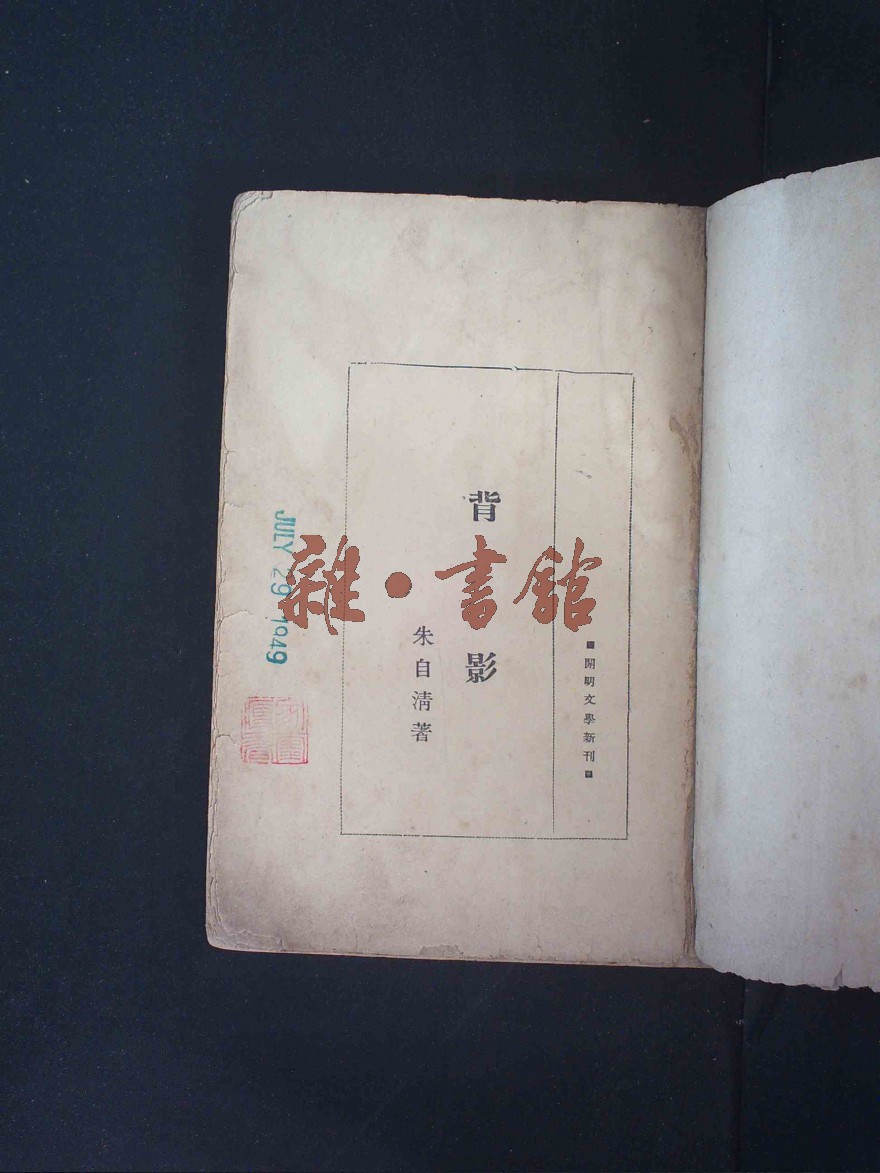 開明文學新刊
背影
朱自清著
JULY 29 1949
雜·書館